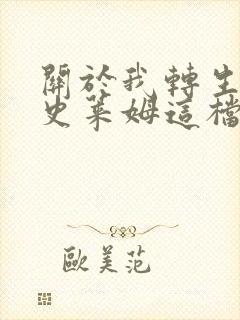 關於我轉生
史萊姆這檔
歐美范